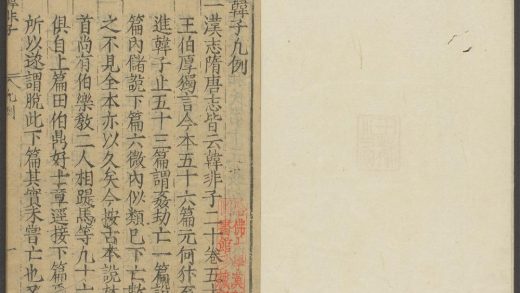 韓子凡例
一漢志隋唐志皆云韓非子二十卷五十
王伯厚獨言今本五十六篇元何犿
進韓子止五十三篇謂姦劫亡一篇說
篇內儲說下篇六微內似類已下亡數
之不見全本亦以久矣今按古本說林
首尚有伯樂教二人相踶馬等九十六
俱自上篇田伯鼎好士章逕接下篇
所以遂謂脫此下篇其實未嘗亡也又
凡例 一
書館